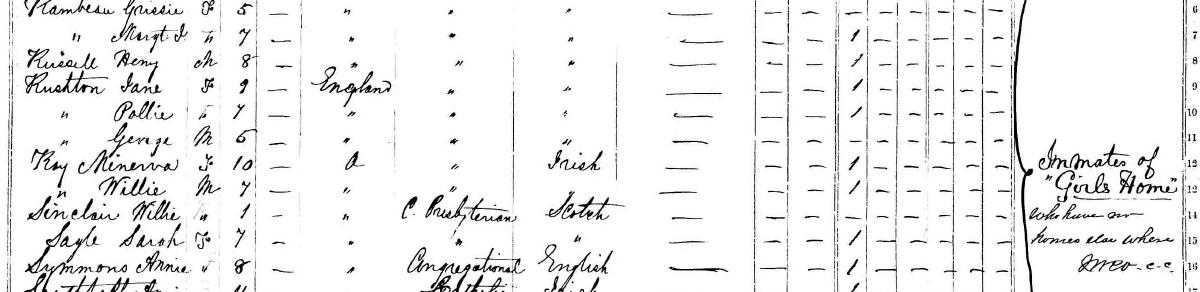 Rambeau Grissie F 5 — " " " — — — 1 — — — — — 6
" Margt J. " 7 — " " " — — — 1 — — — — — 7
Russell Heny M 8 — " " " — — — 1 — — — — — 8
Rushton Jane F 9 — England " " — — — 1 — — — — — 9
" Pollie F 7 — " " " — — — 1 — — — — — 10
" George M 5 — " " " — — — 1 — — — — — 11
Roy Minerva F 10 — O " Irish — — — 1 — — — — — Inmates of 12
" Willie M 7 — " " — — — 1 — — — — — "Girls Home" 13
Sinclair Willie " 1 — " C. Presbyterian Scotch — — — — — — — — — who have no 14
Sayle Sarah F 7 — " " " — — — 1 — — — — — homes else where 15
Symmons Annie " 8 — " Congregational English — — — 1 — — — — — 16